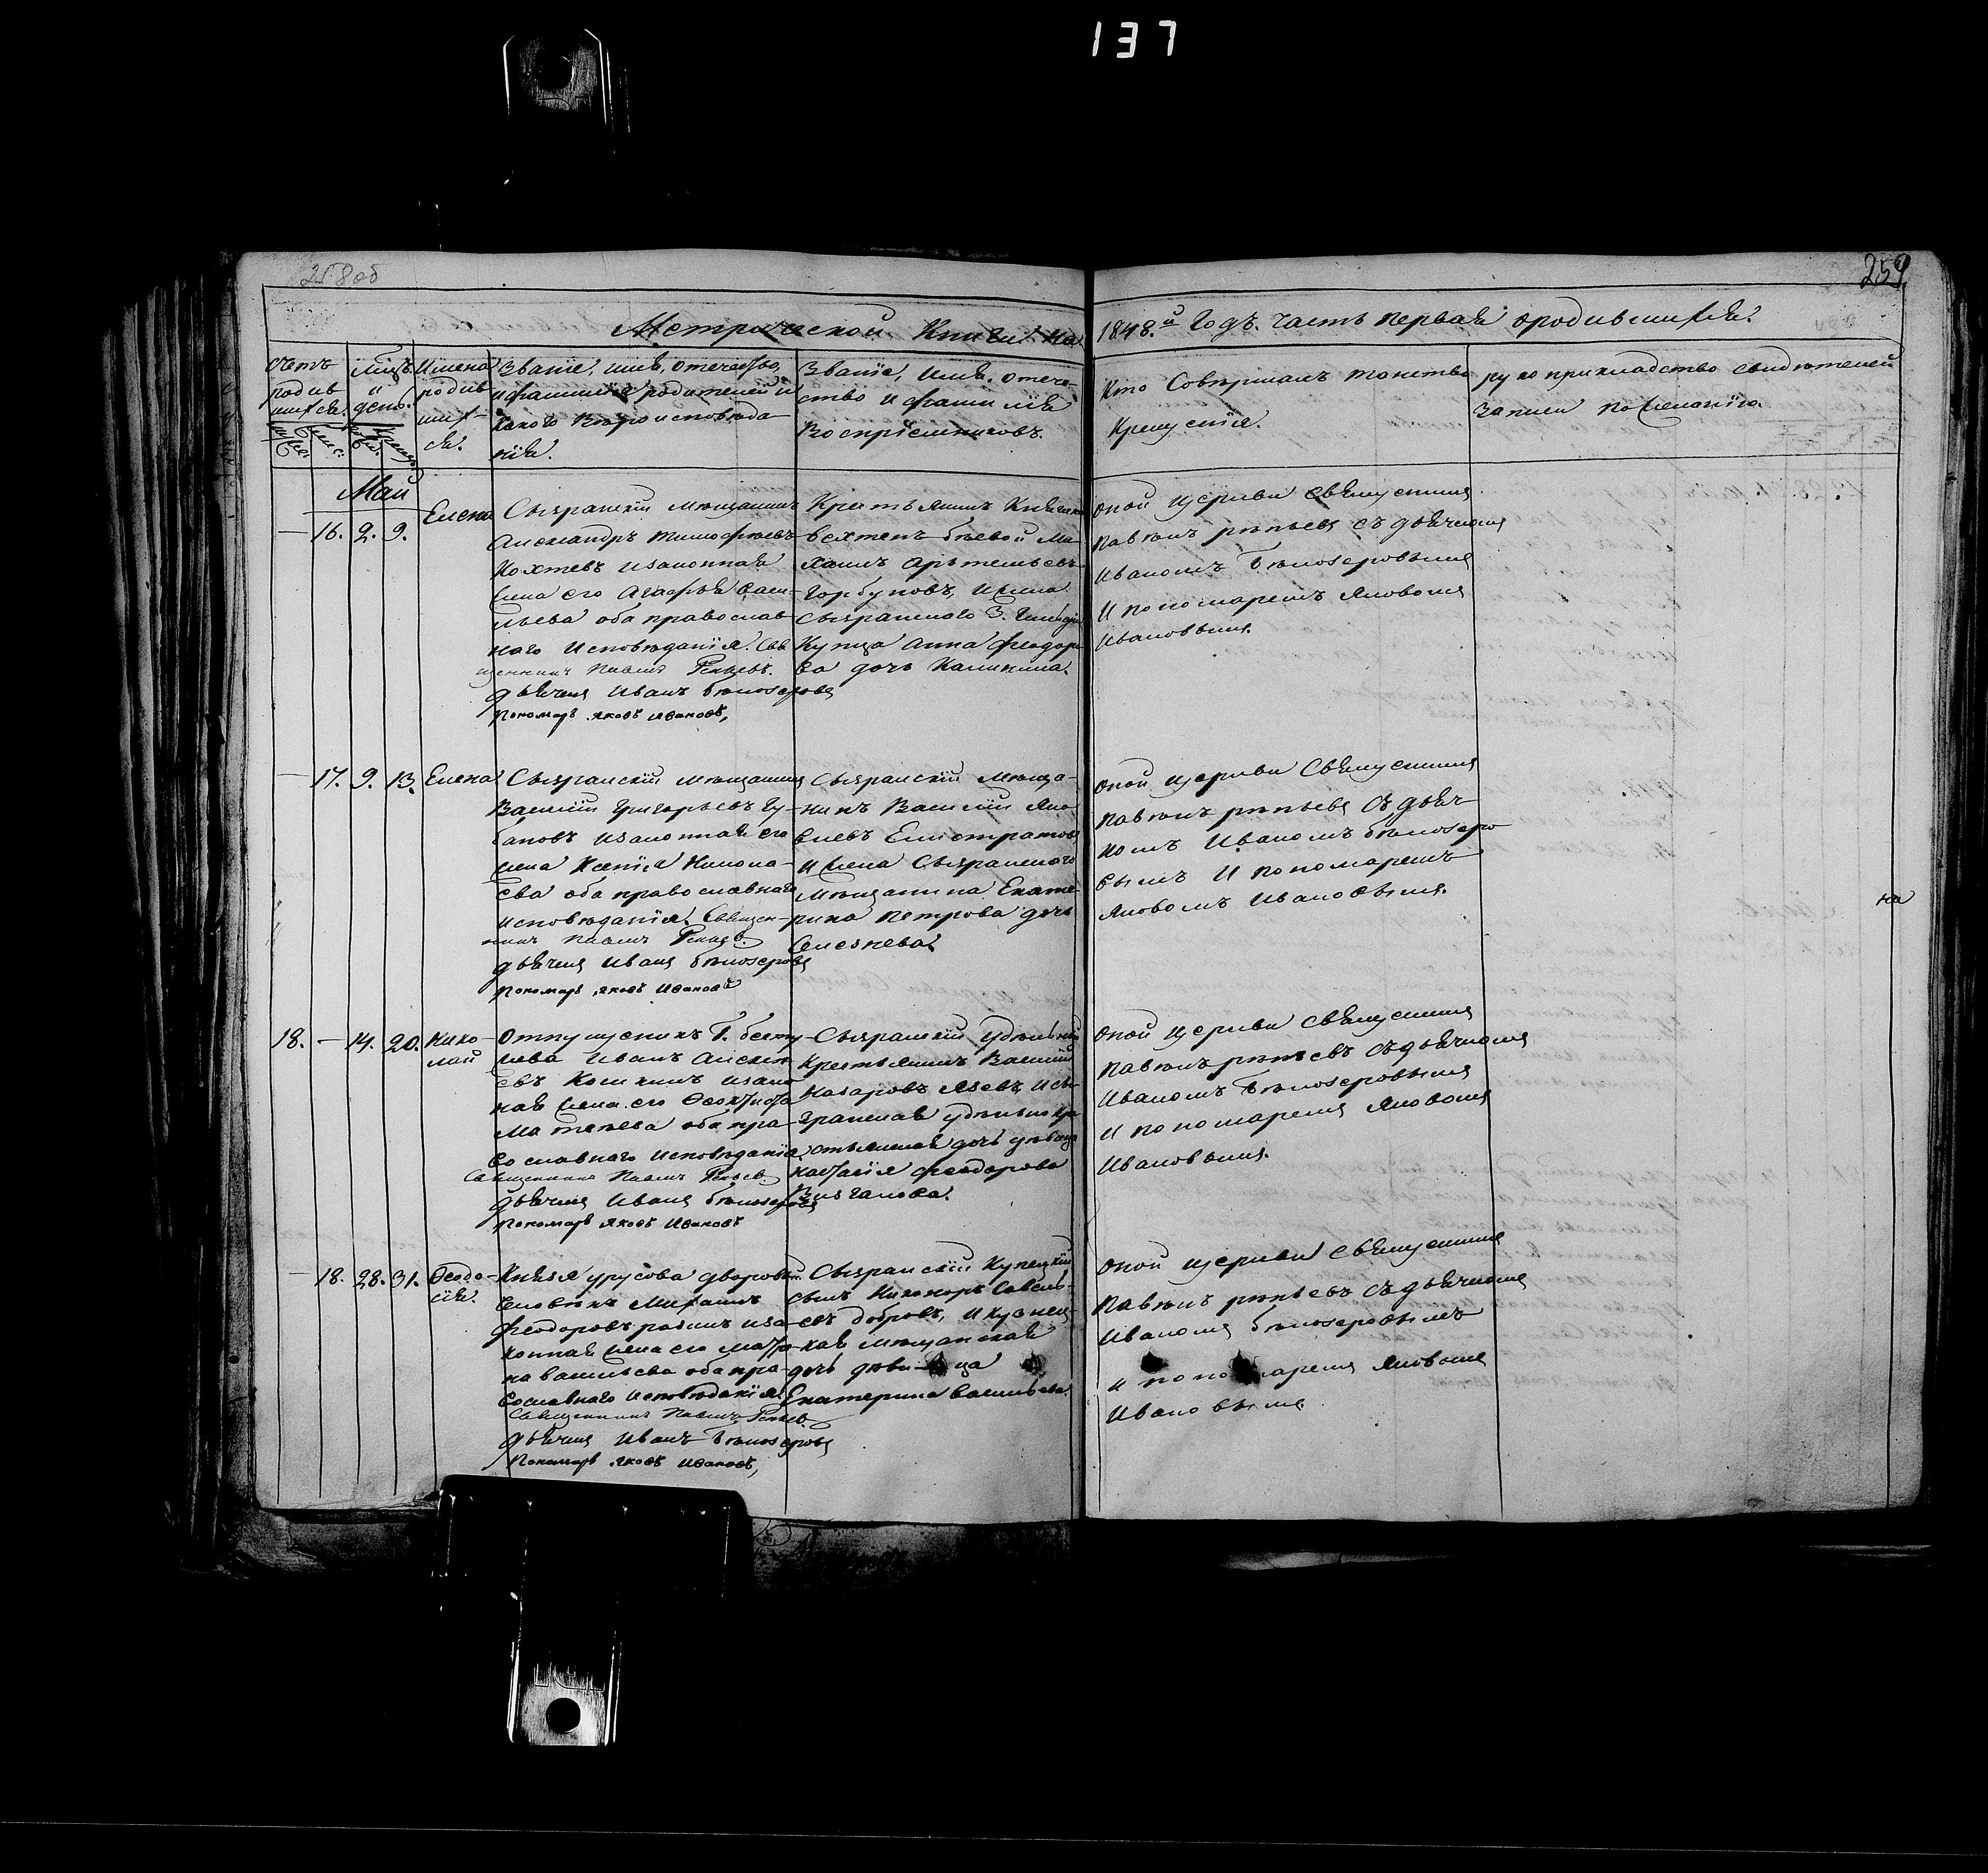 137
258 об
259
Метрической Книги на 1848.й Годъ. часть первая ородившихся.
Счетъ родив шихся.
мѣсяцъ и день.
Имена родив шихся.
Званїе, имя, отечество,
и фамилїя родителей и
какого вѣроисповѣда
нїя.
Званїе, имя, отече-
ство и фамилїя
Воспрїемниковъ.
Кто Совершалъ таинство
Крещенїя.
рукоприкладство свидѣтелей
записи по желанїю.
Май
— 16. 2. 9. Елена
Сызранскїй мѣщанинъ
Александръ тимофѣевъ
Кохтевъ изаконная
жена его Агафья васи-
льева оба православ
наго Исповѣданїя. Свя
щенникъ Павелъ Репьевъ.
дьячекъ Иванъ бѣлозеровъ
Пономарь Яковъ Ивановъ,
Крестьянинъ Княгини
Ми
хаилъ Артемьевъ
Горбуновъ, И жена
Сызранскаго 3. Гильдїи
Купца Анна феодоро
ва дочь Калинина.
оной церкви Священникъ
павелъ рѣпьевъ съ дьячкомъ
Иваномъ Бѣлозеровымъ
И пономаремъ Яковомъ
Ивановымъ.
— 17. 9. 13. Елена
Сызранскїй мѣщанинъ
Василїй Григорьевъ Гу-
бановъ изаконная его
жена Ксенїя Никола-
ева оба православнаго
исповѣданїя. Священ-
никъ Павелъ Репьевъ.
дьячекъ Иванъ бѣлозеровъ
Пономарь Яковъ Ивановъ
Сызранскїй мѣща-
нинъ Василїй Яко
влевъ Елистратовъ
И жена Сызранскаго
мѣщанина Екате-
рина петрова дочь
Селезнева.
оной церкви Священникъ
павелъ рѣпьевъ Съ дьяч-
комъ Иваномъ бѣлозеро
вымъ И пономаремъ
Яковомъ Ивановымъ.
на
18. — 14. 20. Нико-
лай
Отпущенникъ Г. бесту
жева Иванъ Алексѣ
евъ Кошкинъ изакон
ная жена его Ѳеоктиста
Матвѣева оба пра-
вославнаго исповѣданїя
Священникъ Павелъ Репьев.
дьячекъ Иванъ бѣлозеровъ
Пономарь Яковъ Ивановъ
Сызранскїй удѣльный
Крестьянинъ Василїй
Назаровъ Исы-
зранская удѣльная кре
стьянская дочь дѣвица
настасїя феодорова
оной церкви Священникъ
павелъ рѣпьевъ съ дьячкомъ
Иваномъ Бѣлозеровымъ
И пономаремъ Яковомъ
Ивановымъ.
— 18. 28. 31. Ѳеодо-
сїя.
Князя урусова дворовый
Человѣкъ Михаилъ
феодоровъ изa-
конная жена его Матро
на васильева оба пра-
вославнаго исповѣданїя
Священникъ Павелъ Репьев.
дьячекъ Иванъ Бѣлозеровъ
Пономарь Яковъ Ивановъ,
Сызранскїй Купецкїй
сынъ Никоноръ Савель-
евъ добровъ, И кузнец-
кая мѣщанская
дочь дѣвица
Екатерина васильева.
оной церкви Священникъ
павелъ рѣпьевъ Съ дьячкомъ
Иваномъ бѣлозеровымъ
И пономаремъ Яковомъ
Ивановымъ